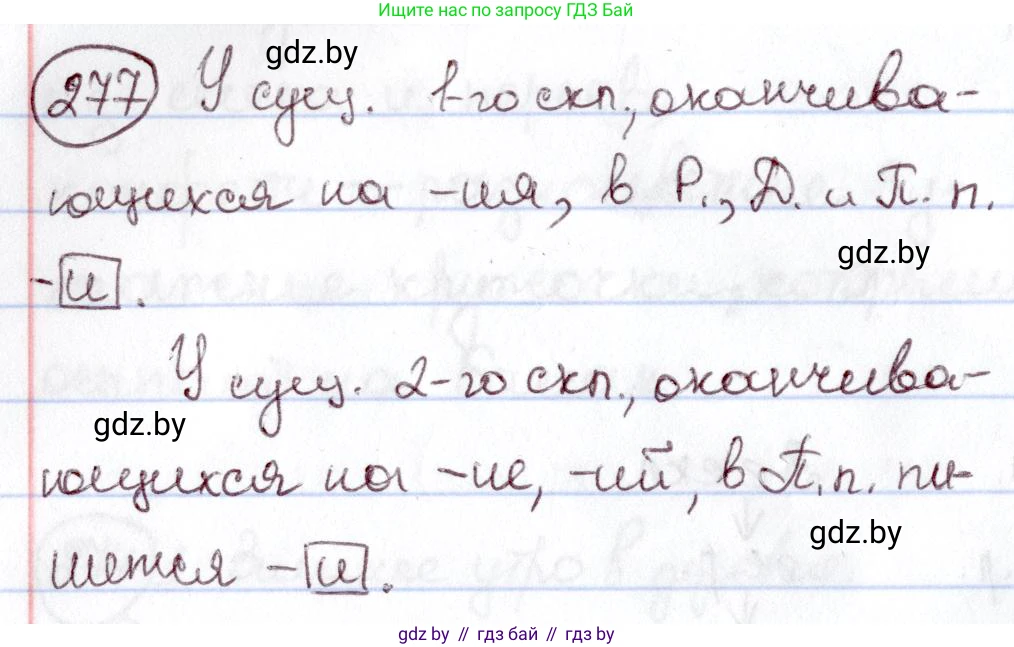 Ищите нас по запросу ГДЗ Бай
gdz.by
277 У сущ. 1-го скл., оканчива-
ющихся на -ия, в Р., Д. и П. п.
gdz.by
-и.
У сущ. 2-го скл., оканчива-
gdz.by
ющихся на -ие, -ий, в П. п. пи-
gdz.by
шется -и.
gdz.by // гдз бай // гдз by